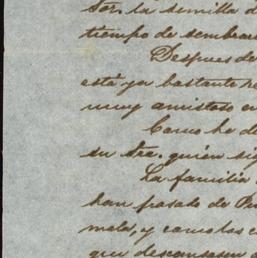 Sor. la semilla d
tiempo de sembrar
Despues de
está ya bastante
muy amistoso
Como he d
su Sra. quién si
La familia
han pasado de
mala, y como las
que descansasen